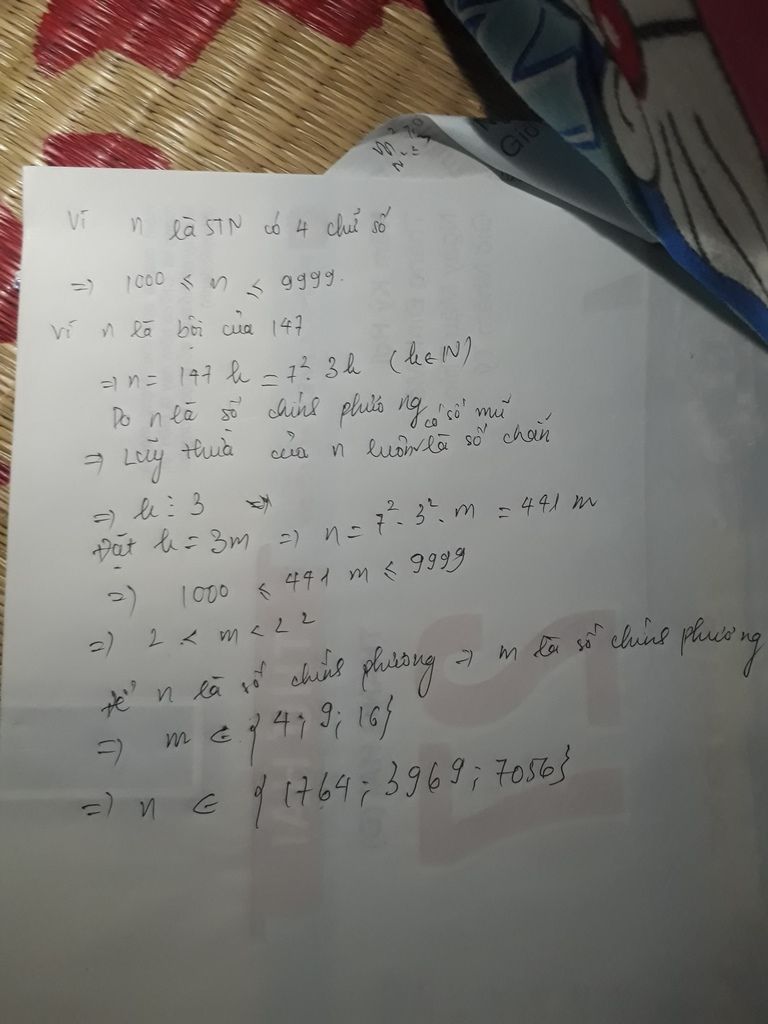 Vì n là STN có 4 chữ số
=> 1000 ≤ n ≤ 9999.
Vì n là bội của 147
=> n = 147 k = 7². 3k (k∈N)
Do n là số chính phương
có số mũ
=> Lũy thừa của n luôn là số chẵn
=> k ⋮ 3 =>
Đặt k = 3m => n = 7². 3². m = 441 m
=> 1000 ≤ 441 m ≤ 9999
=> 2 < m < 22
Để n là số chính phương => m là số chính phương
=> m ∈ {4; 9; 16}
=> n ∈ {1764; 3969; 7056}